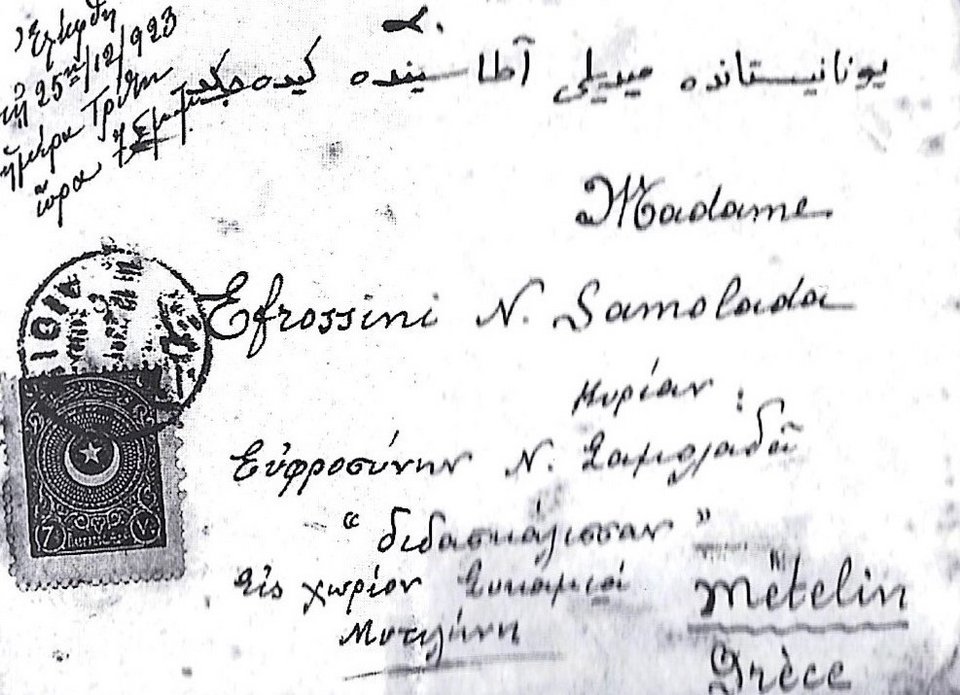 Ἐλήφθη
τῇ 25ῃ/12/923
ἡμέρα Τρίτη
ὥρα 7
يونانيستانده ميديللى آطا سينده كيده جكدر
Madame
Efrossini N. Samolada
Κυρίαν :
Εὐφροσύνην Ν. Σαμολαδᾶ
“ διδασκάλισσαν ”
Εἰς χωρίον Συκαμιά
Μυτιλήνη
Mételin
Grèce
7